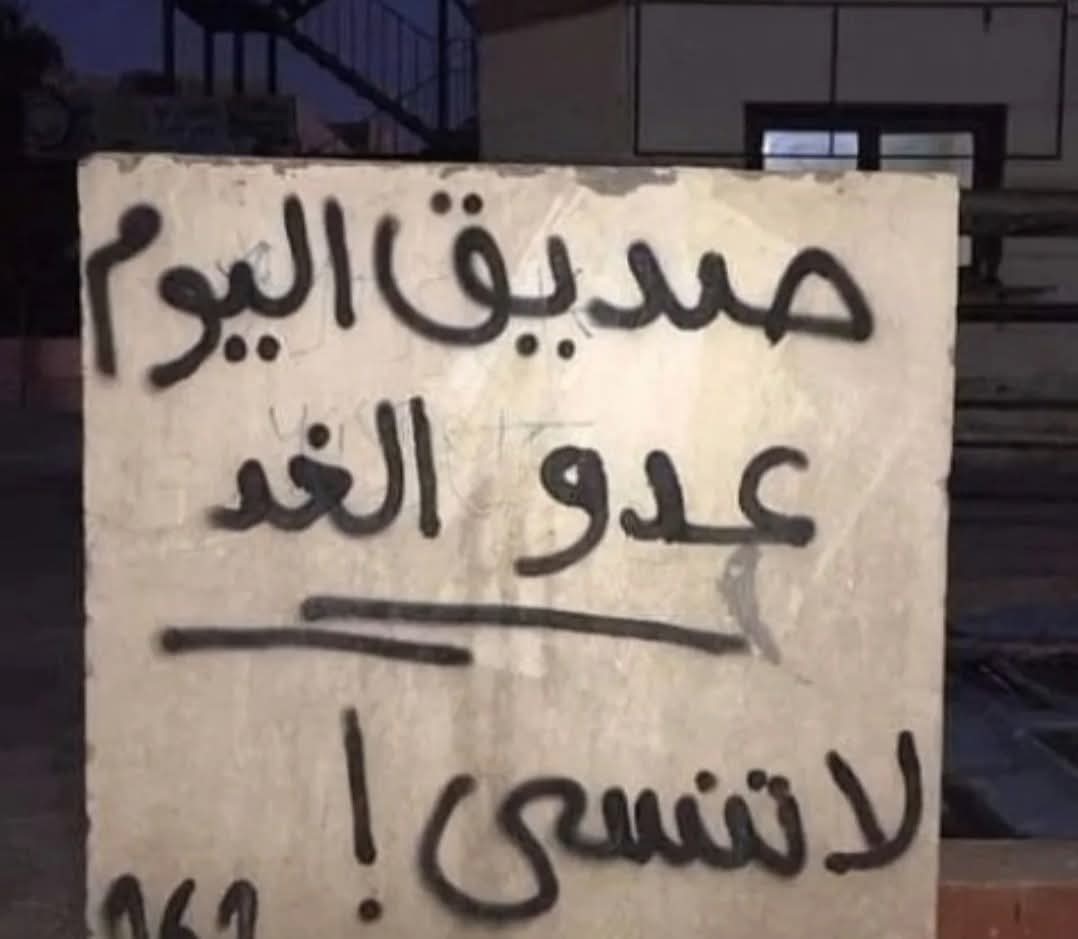 صديق اليوم
عدو الغد
لا تنسى !